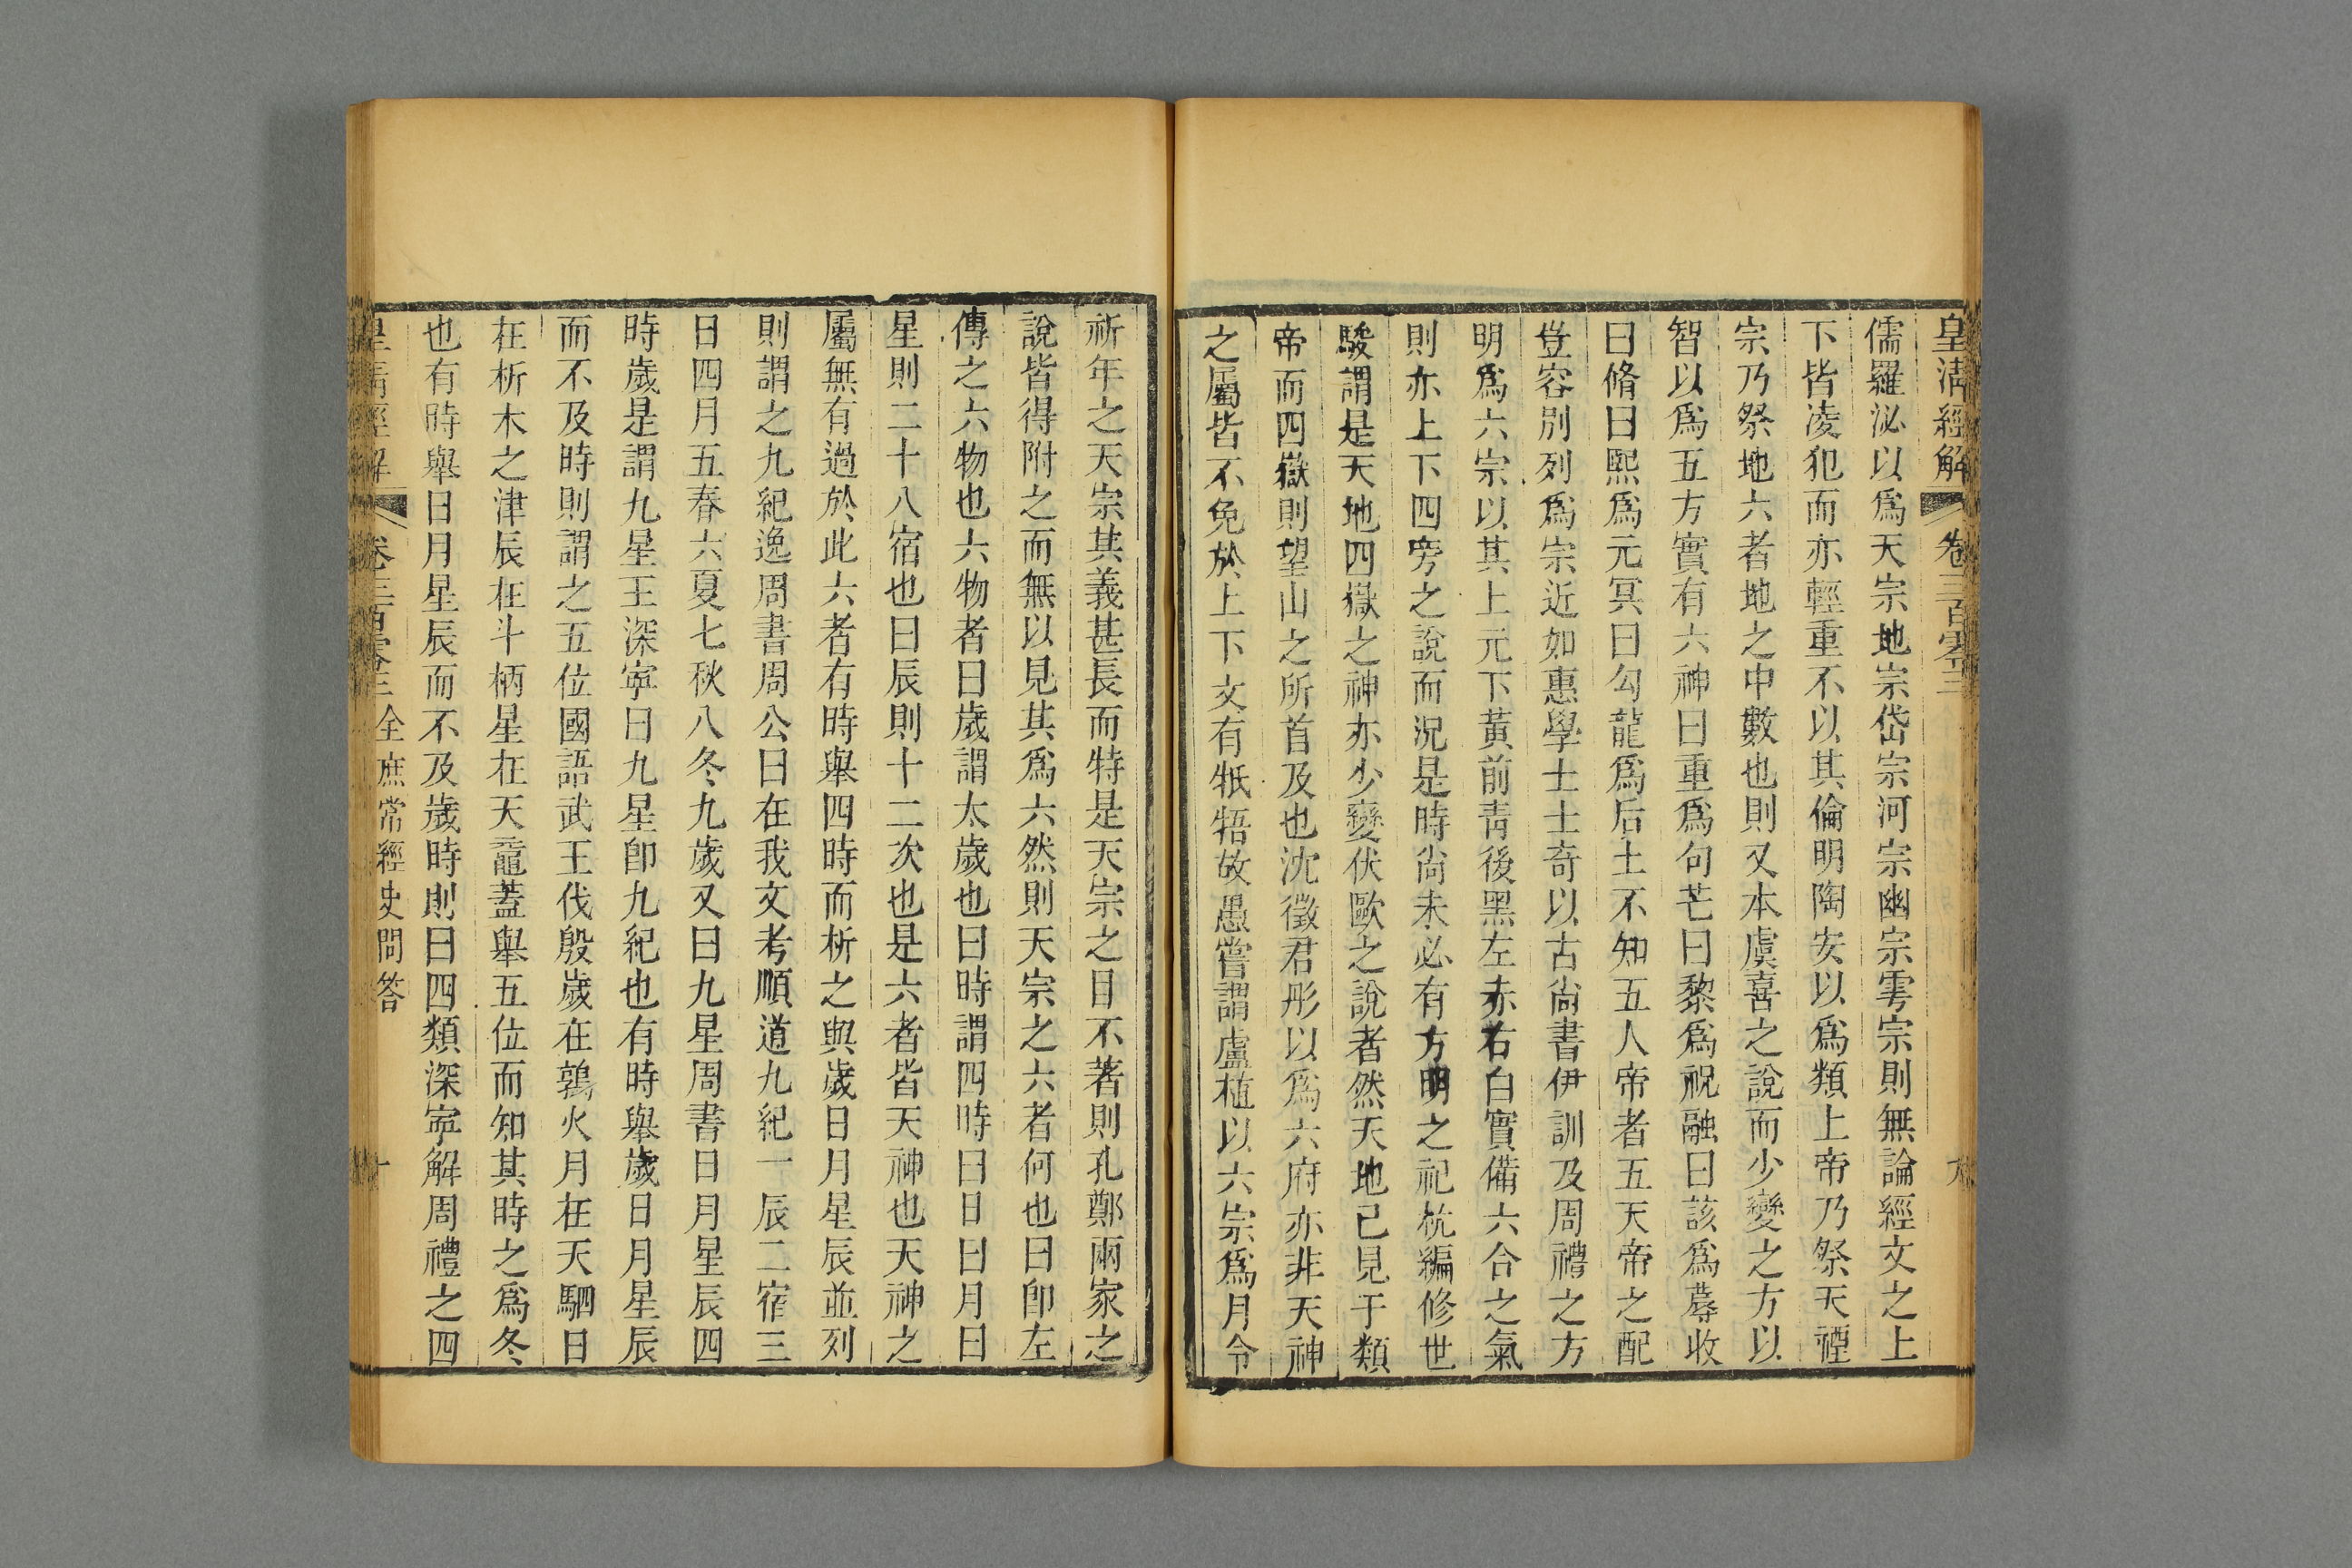 皇清經解 卷三百零三
儒羅泌以爲天宗地宗岱宗河宗幽宗雩宗則無論經文之上
下皆凌犯而亦輕重不以其倫明陶安以爲類上帝乃祭天禋
宗乃祭地六者地之中數也則又本虞喜之說而少變之方以
智以爲五方實有六神曰重爲句芒曰黎爲祝融曰該爲蓐收
曰脩曰熙爲元冥曰勾龍爲后土不知五人帝者五天帝之配
豈容別列爲宗近如惠學士士奇以古尙書伊訓及周禮之方
明爲六宗以其上元下黃前靑後黑左赤右白實備六合之氣
則亦上下四旁之說而況是時尙未必有方明之祀杭編修世
駿謂是天地四嶽之神亦少變伏歐之說者然天地已見于類
帝而四嶽則望山之所首及也沈徵君彤以爲六府亦非天神
之屬皆不免於上下文有牴牾故愚嘗謂盧植以六宗爲月令
祈年之天宗其義甚長而特是天宗之目不著則孔鄭兩家之
說皆得附之而無以見其爲六然則天宗之六者何也曰卽左
傳之六物也六物者曰歲謂太歲也曰時謂四時曰日曰月曰
星則二十八宿也曰辰則十二次也是六者皆天神也天神之
屬無有過於此六者有時舉四時而析之與歲日月星辰並列
則謂之九紀逸周書周公曰在我文考順道九紀一辰二宿三
日四月五春六夏七秋八冬九歲又曰九星周書日月星辰四
時歲是謂九星王深寧曰九星卽九紀也有時舉歲日月星辰
而不及時則謂之五位國語武王伐殷歲在鶉火月在天駟日
在析木之津辰在斗柄星在天黿蓋舉五位而知其時之爲冬
也有時舉日月星辰而不及歲時則曰四類深寧解周禮之四
皇清經解 卷三百零三 全庶常經史問答 十